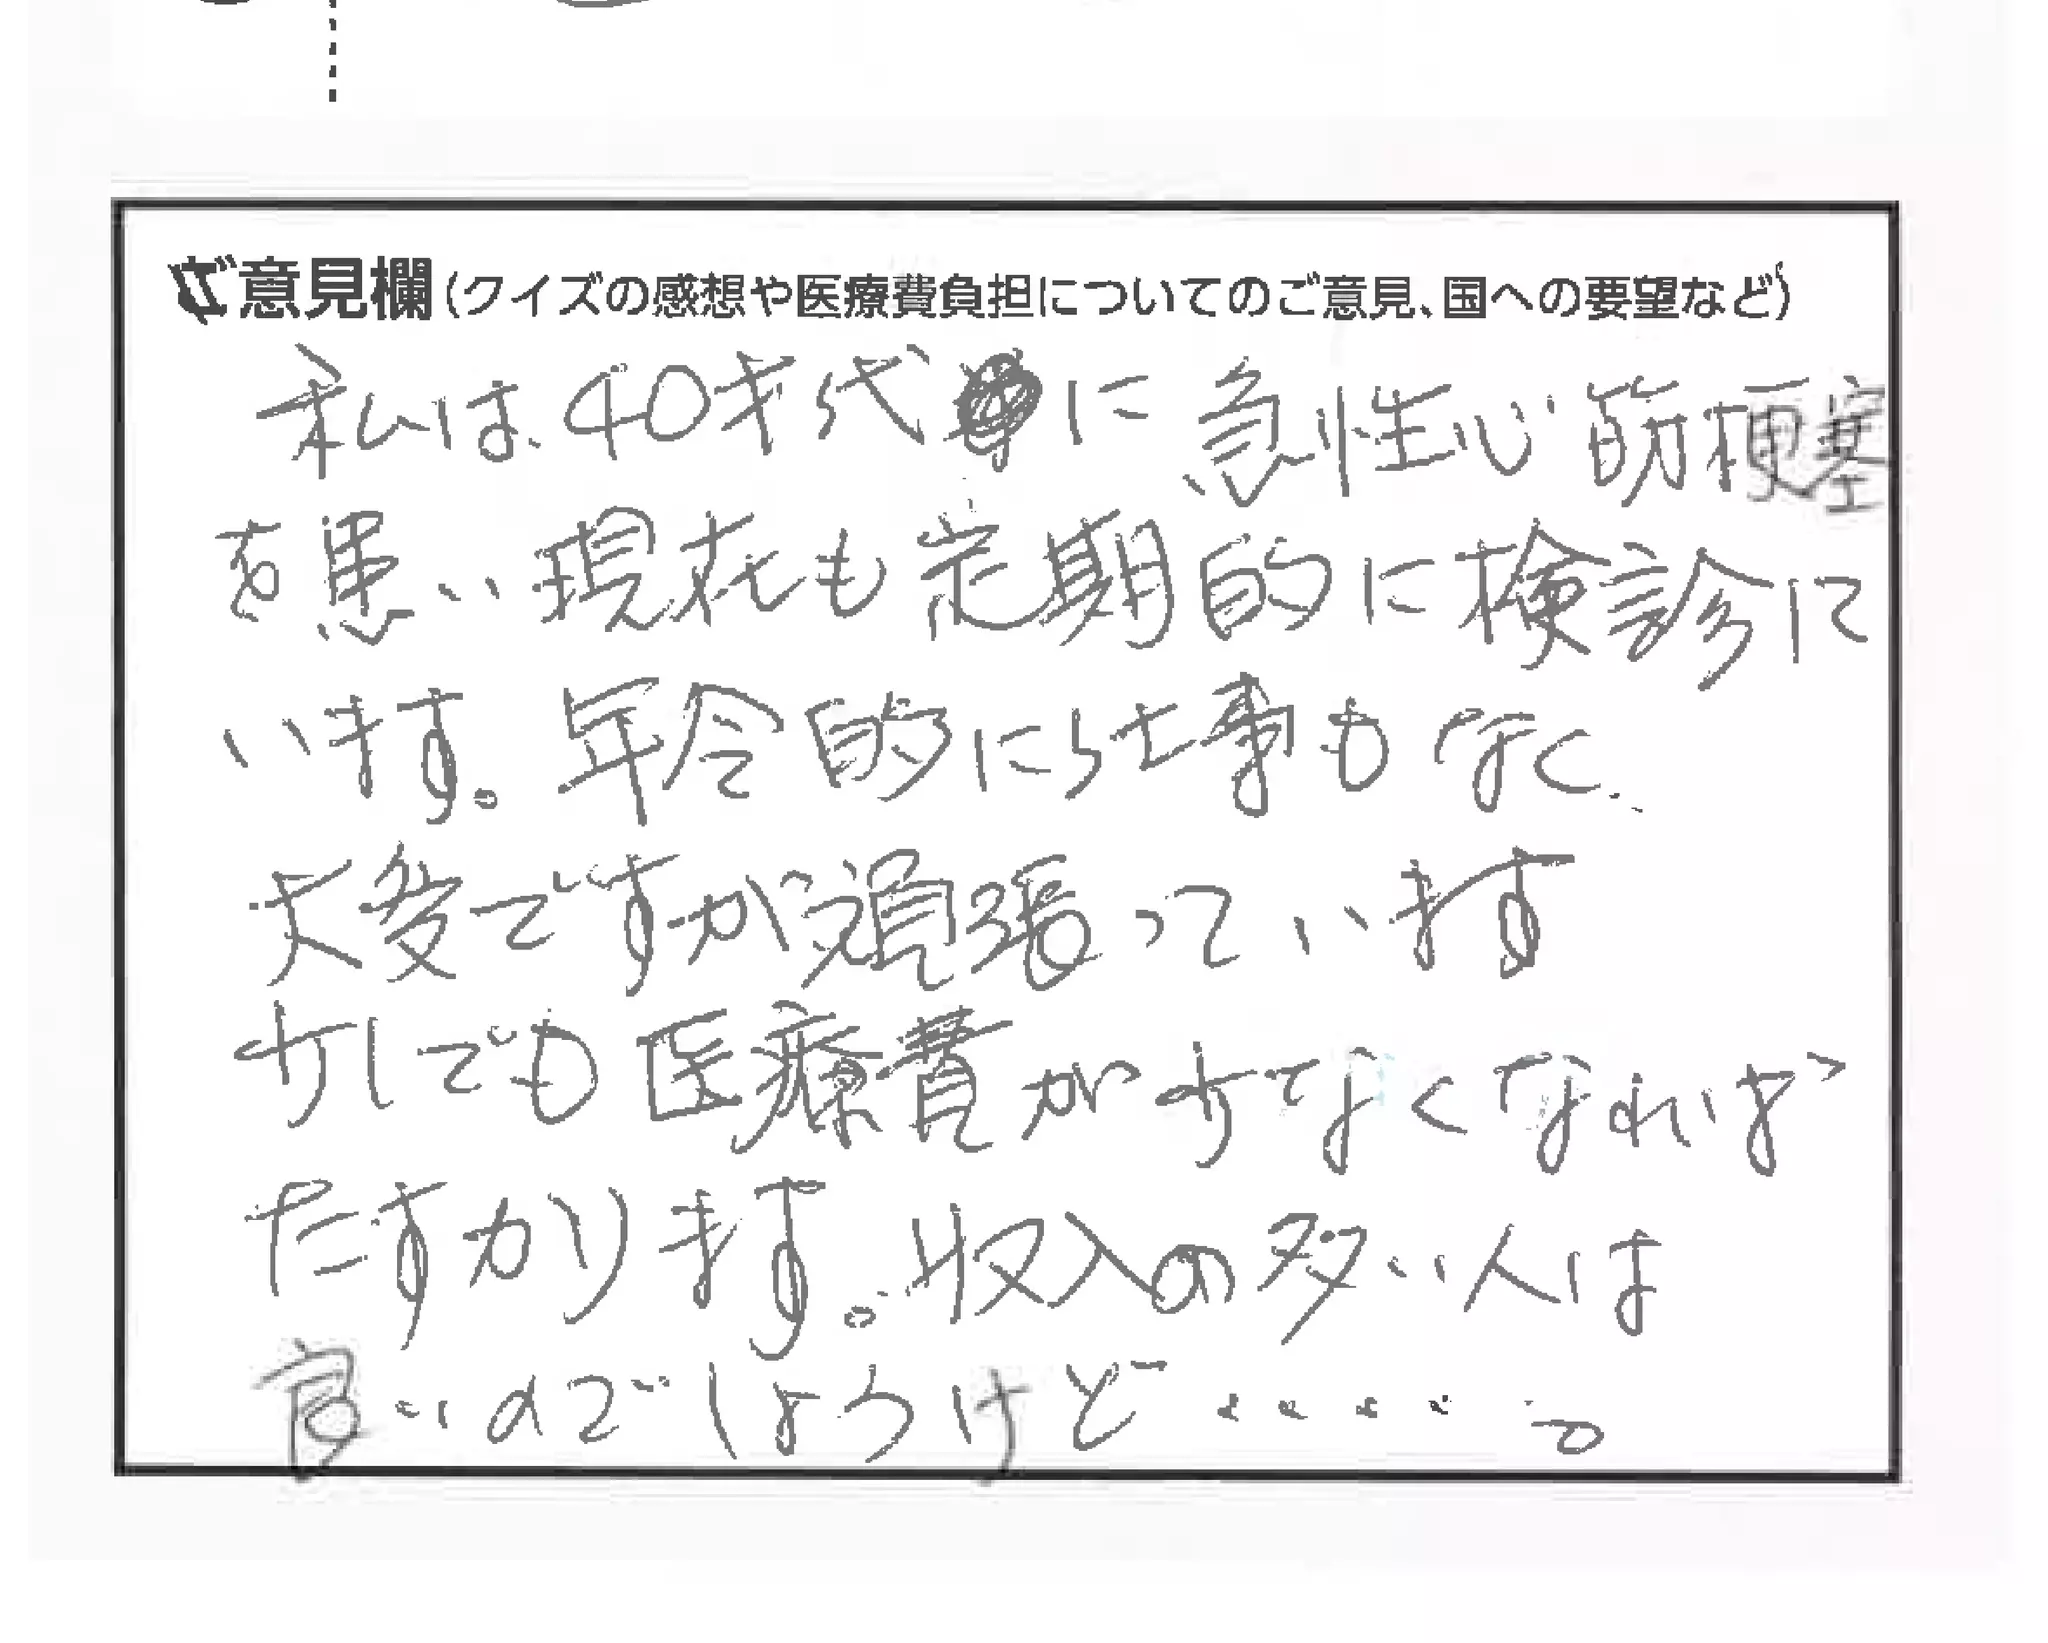 ご意見欄(クイズの感想や医療費負担についてのご意見、国への要望など)
私は、40才代に急性心筋梗塞
を患い現在も定期的に検診に
います。年令的に仕事もなく、
大変ですが頑張っています
少しでも医療費が少なくなれば
たすかります。収入の多い人は
良いのでしょうけど・・・・・。